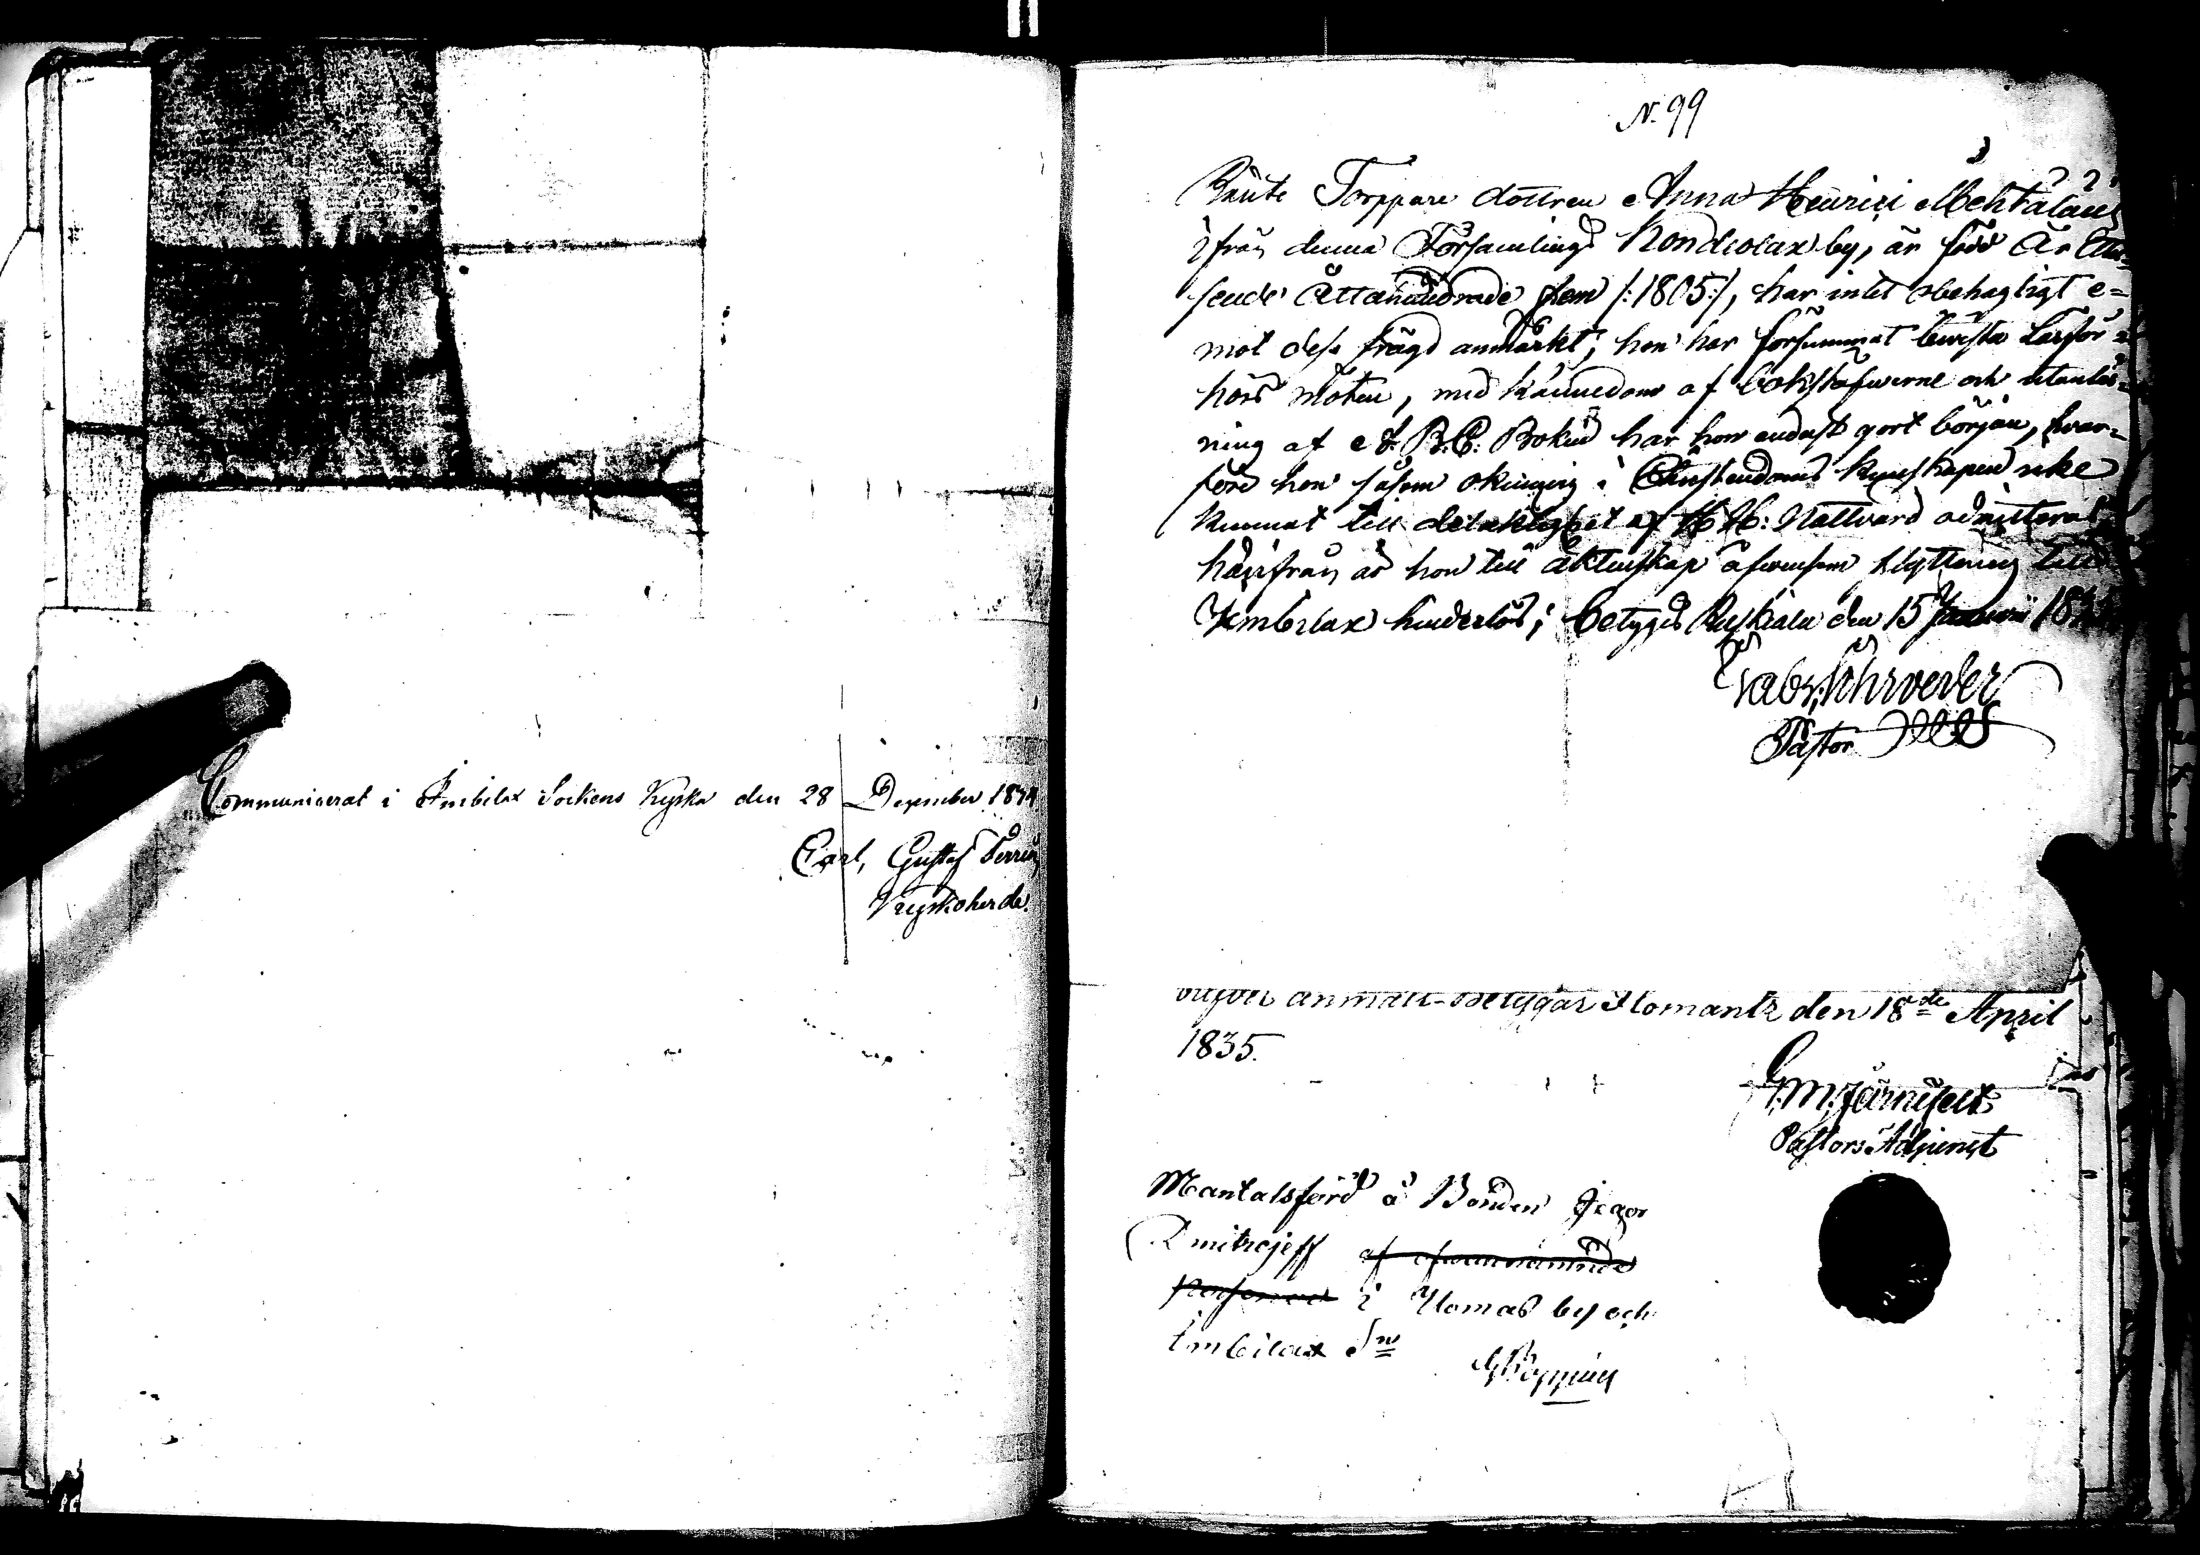 Communicerat i Imbilax Sockens Kyrka den 28 December 1834
Carl, Gustaf
Kyrkoherde.
N. 99
Torppare dottren Anna Henrici Mehtäläin
ifrån denna Församlings Kondiolax by, är född År Ettu-
sende Åttahundrade fem /:1805:/, har intet obehagligt e-
mot dess frägd anmärkt; hon har försummat Läsför-
hörs möten, med kännedom af bokstafverne och utanläs-
ning af A. B. C. Boken har hon endast gort början, hvar-
före hon såsom okunnig i Christendoms kunskapen icke
kunnat till delaktighet af H. H: Nattvard admitteras
härifrån är hon till äktenskap äfvensom flyttning till
Imbilax hinderlös; betygas Ruskiala den 15 Januarii
Pastor
anmält - betygas Ilomants den 18de April
1835.
G. M. Järnefelt
Pastors Adjunct
Mantalsförd å Bonden Jegor
Dmitrejeff af
i by och
Imbilax Sn